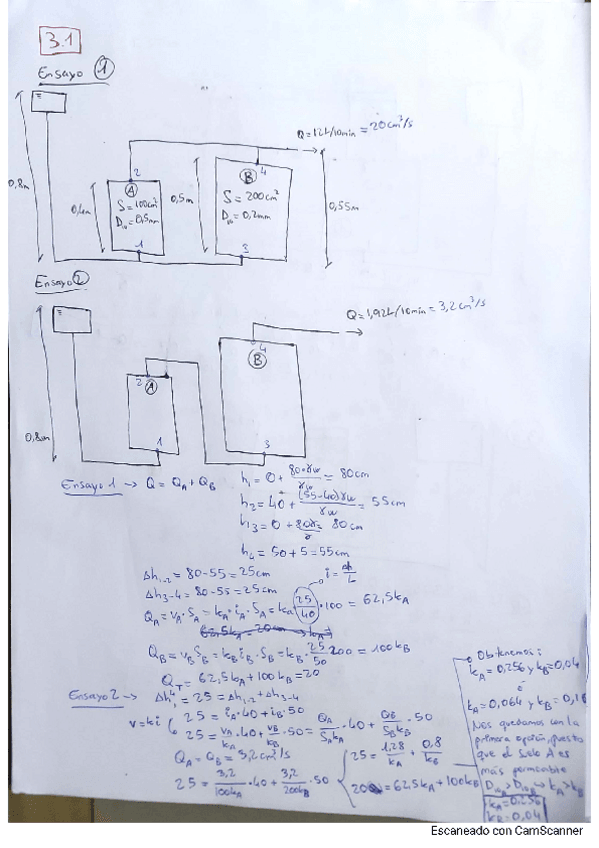 3.1
Ensayo 1
Q=12L/10min = 20cm³/s
2
4
A
B
S=100cm²
D₁₀=0,5mm
S=200cm²
D₁₀=0,2mm
0,8m
0,4m
0,5m
0,55m
1
3
Ensayo 2
Q=1,92L/10min = 3,2cm³/s
2
A
4
B
0,8m
1
3
Ensayo 1 → Q = Q_A + Q_B
h₁ = 0 + 80·γw/γw = 80cm
h₂ = 40 + (55-40)γw/γw = 55cm
h₃ = 0 + 80γ/γ = 80cm
h₄ = 50+5=55cm
Δh₁₋₂ = 80-55 = 25cm
i = Δh/L
Δh₃₋₄ = 80-55 = 25cm
Q_A = v_A·S_A = k_A·i_A·S_A = k_A·25/40·100 = 62,5k_A
Q_B = v_B·S_B = k_B·i_B·S_B = k_B·25/50·200 = 100k_B
Q_T = 62,5k_A + 100k_B = 20
Ensayo 2 → Δh₁⁴ = 25 = Δh₁₋₂ + Δh₃₋₄
25 = i_A·40 + i_B·50
v=ki
25 = v_A/k_A·40 + v_B/k_B·50 = Q_A/S_A k_A·40 + Q_B/S_B k_B·50
Q_A = Q_B = 3,2cm³/s
25 = 3,2/100k_A·40 + 3,2/200k_B·50
25 = 1,28/k_A + 0,8/k_B
20 = 62,5k_A + 100k_B
Obtenemos:
k_A=0,256 y k_B=0,04
ó
k_A=0,064 y k_B=0,16
Nos quedamos con la
primera opción, puesto
que el suelo A es
más permeable
D₁₀A > D₁₀B → k_A > k_B
k_A=0,256
k_B=0,04
Escaneado con CamScanner